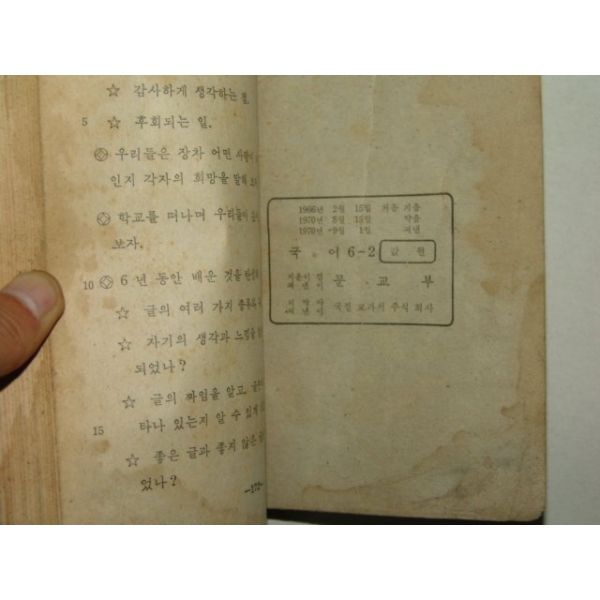 ☆ 감사하게 생각하는 점.
5 ☆ 후회되는 일.
우리들은 장차 어떤 사람이
인지 각자의 희망을 말해 보
학교를 떠나며 우리들이
보자.
10 6 년 동안 배운 것을
☆ 글의 여러 가지 종류
☆ 자기의 생각과 느낌을
되었나?
☆ 글의 짜임을 알고 글
15 타나 있는지 알 수 있게
☆ 좋은 글과 좋지 않은
었나?
1966년 2월 15일 처음 기음
1970년 8월 15일 박음
1970년 9월 1일 펴냄
국 어 6-2 값 원
지은이 겸 펴낸이 문 교 부
펴낸이 국정 교과서 주식 회사